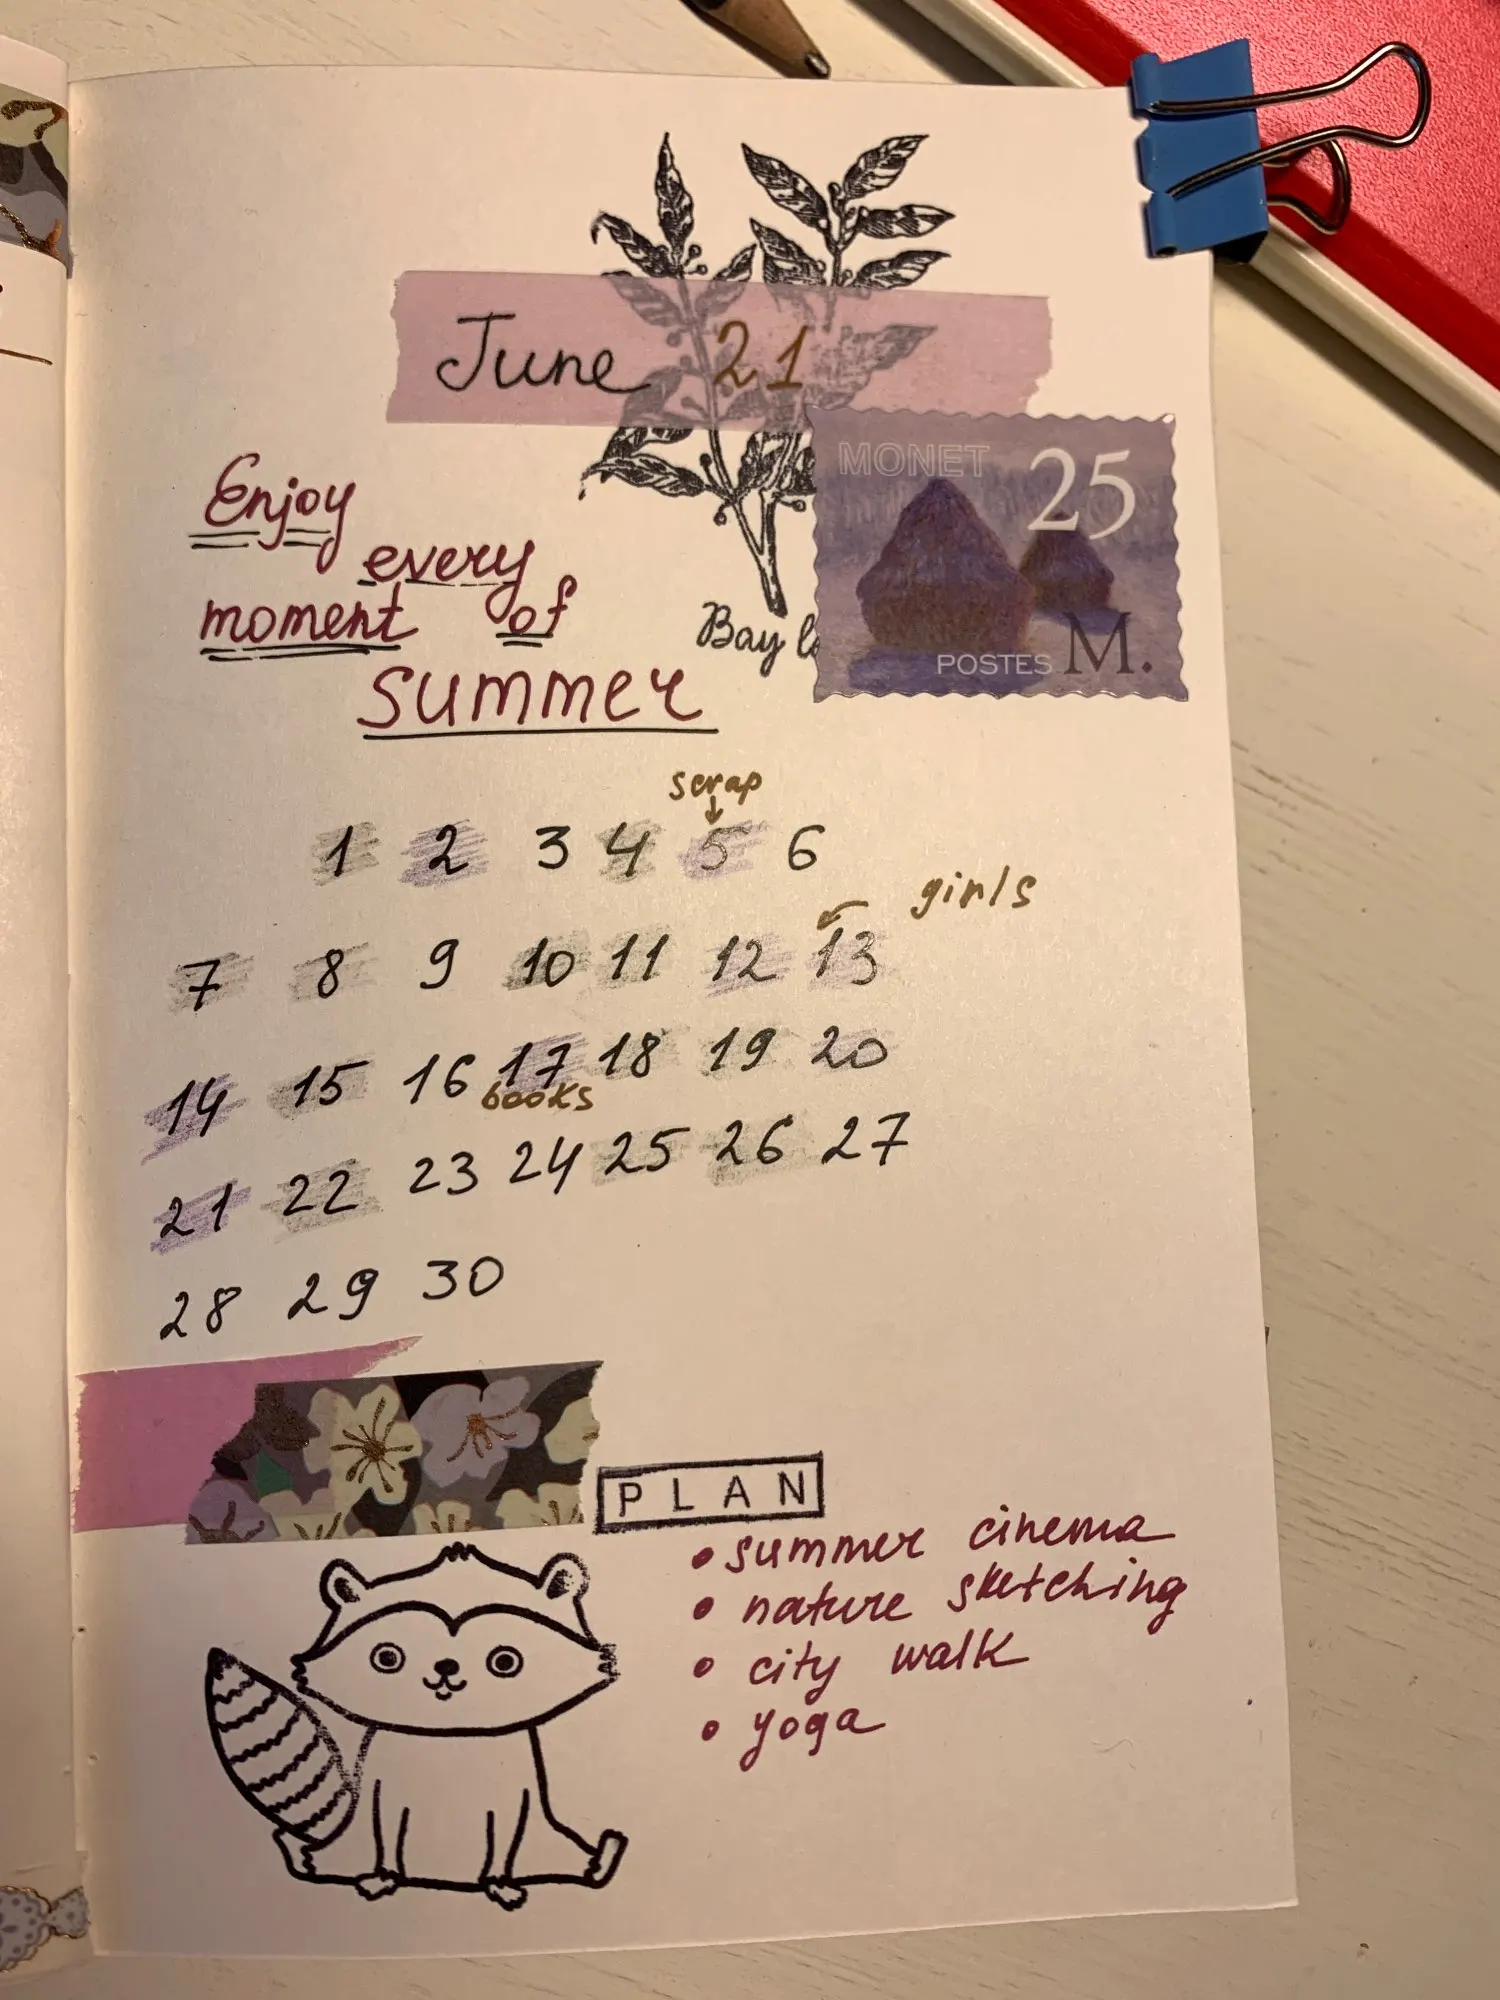 June 21
MONET 25
Enjoy
every
moment of
Bay
POSTES M.
summer
scrap
1 2 3 4 5 6
girls
7 8 9 10 11 12 13
14 15 16 17 18 19 20
books
21 22 23 24 25 26 27
28 29 30
PLAN
• summer cinema
• nature sketching
• city walk
• yoga